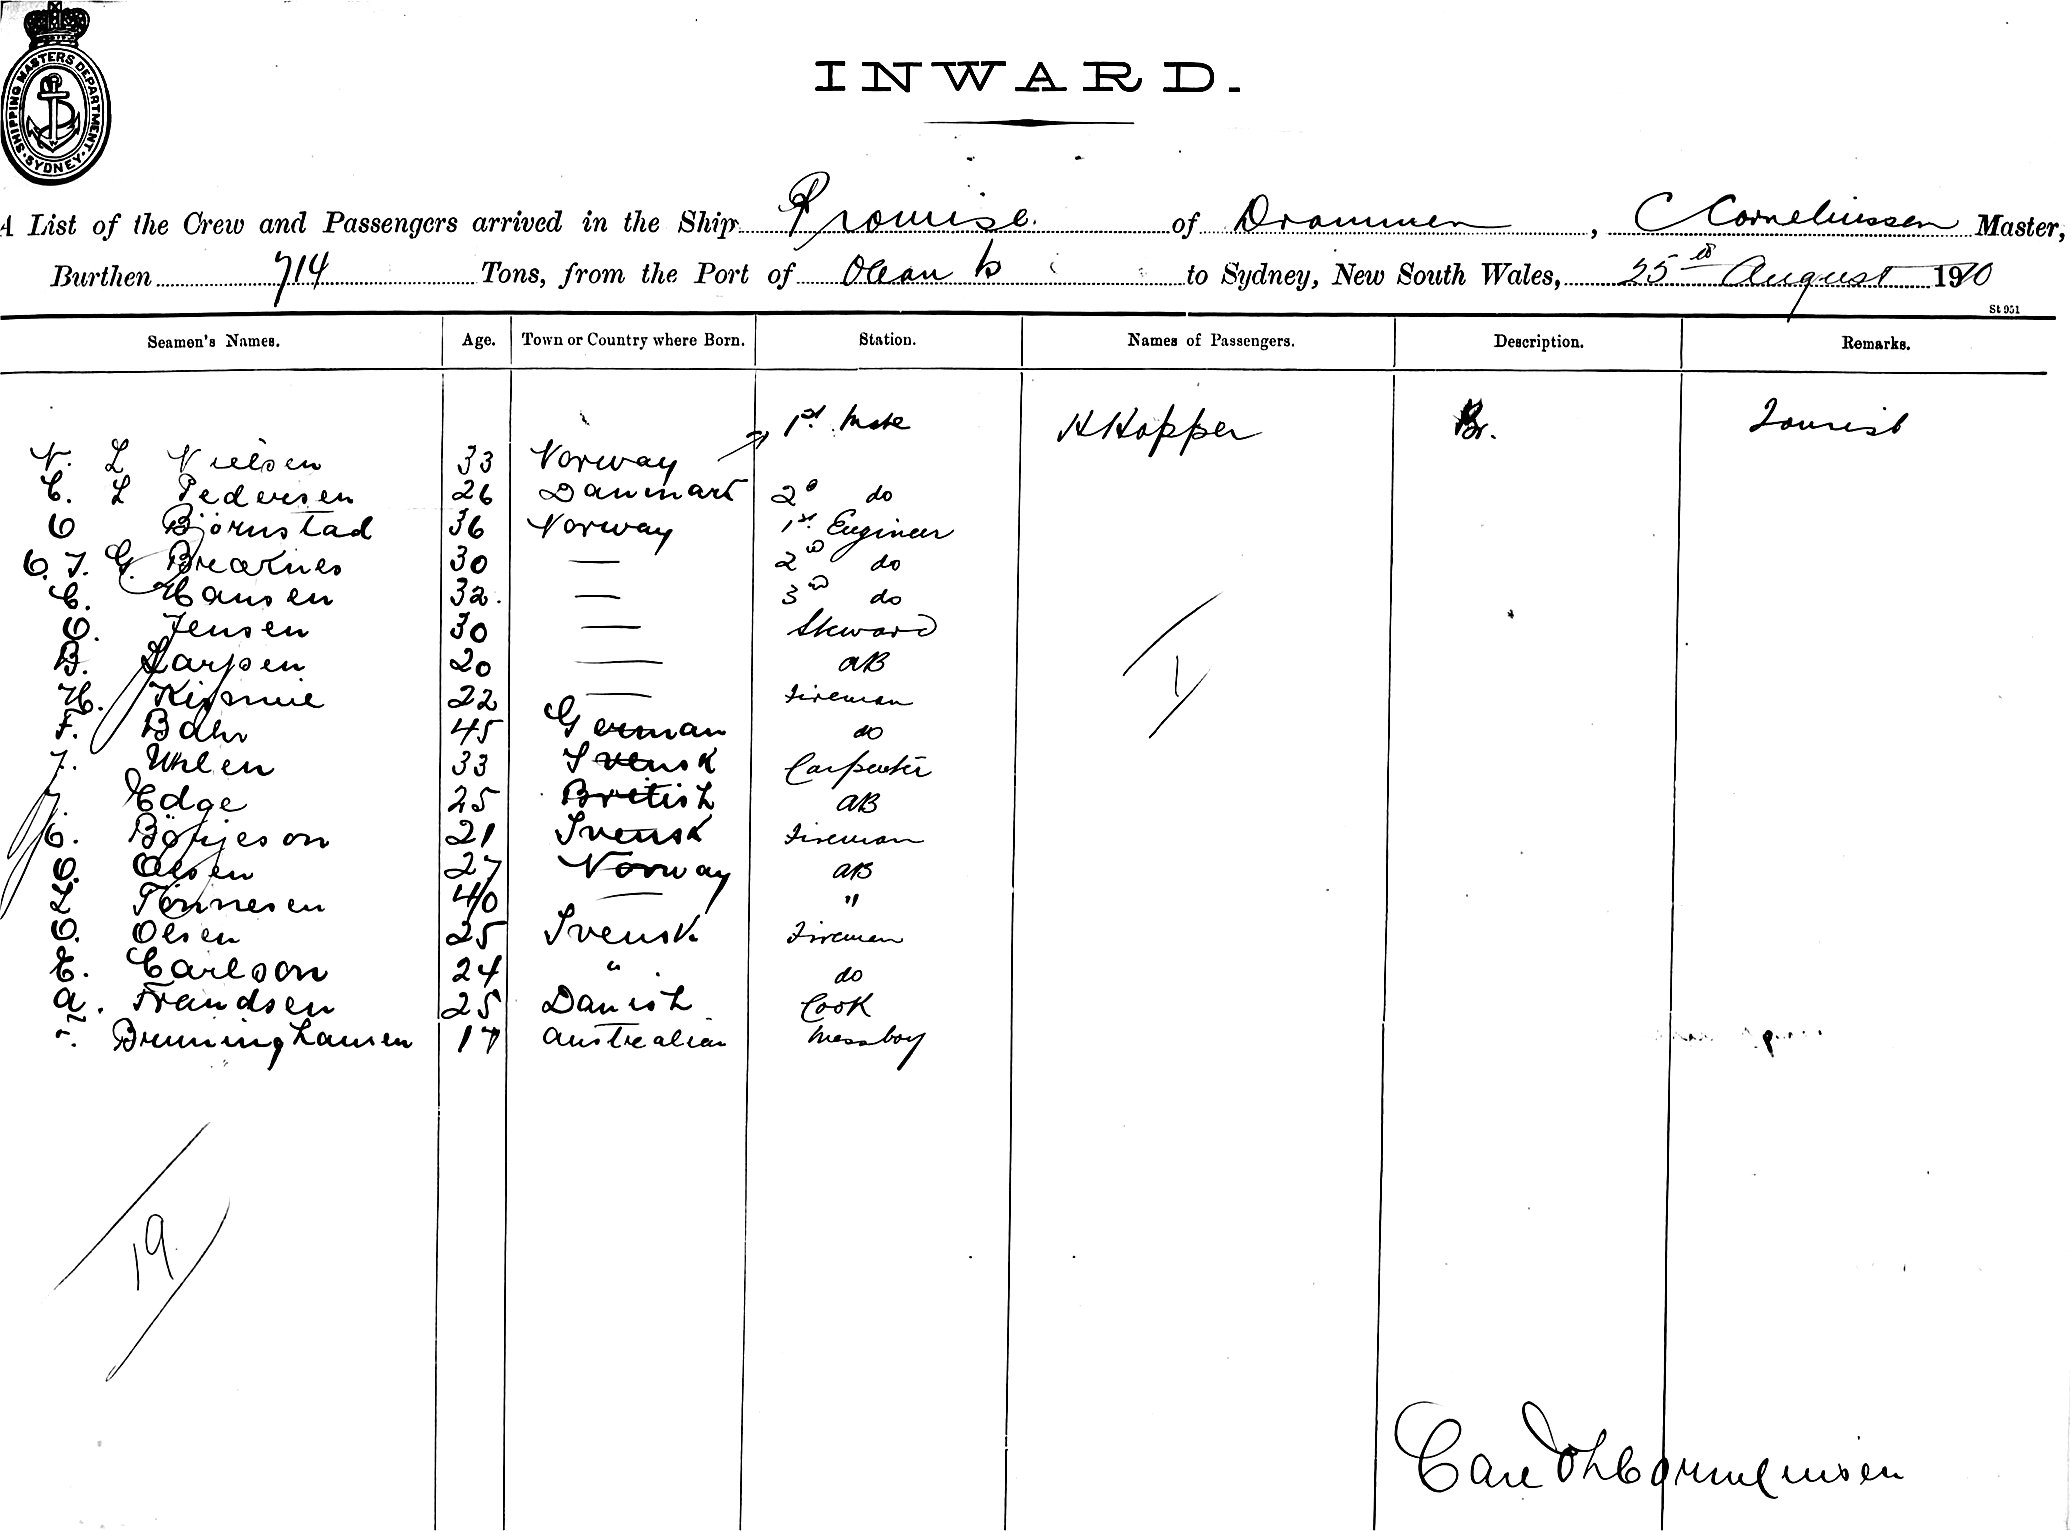 SHIPPING MASTERS DEPARTMENT · SYDNEY ·
INWARD.
A List of the Crew and Passengers arrived in the Ship Promise of Drammen, C Corneliussen Master,
Burthen 714 Tons, from the Port of Ocean Is to Sydney, New South Wales, 25th August 1910
St 951
Seamen's Names. Age. Town or Country where Born. Station. Names of Passengers. Description. Remarks.
N. L Nielsen 33 Norway 1st Mate H Hopper Br. Tourist
C. L Pedersen 26 Danmark 2d do
O Björnstad 36 Norway 1st Engineer
O. J. G. Breaknes 30 — 2nd do
C. Hansen 32. — 3rd do
O. Jensen 30 — Steward
B. Larsen 20 — AB
H. 22 — Fireman
F. Bahr 45 German do
J. Uhlen 33 Svensk Carpenter
J. Edge 25 British AB
C. Börjeson 21 Svensk Fireman
O. Olsen 27 Norway AB
L Tönnesen 40 — "
O. Olsen 25 Svensk Fireman
E. Carlson 24 " do
A. Frandsen 25 Danish Cook
Bruninghausen 17 Australian Messboy
1
19
Carl Corneliussen